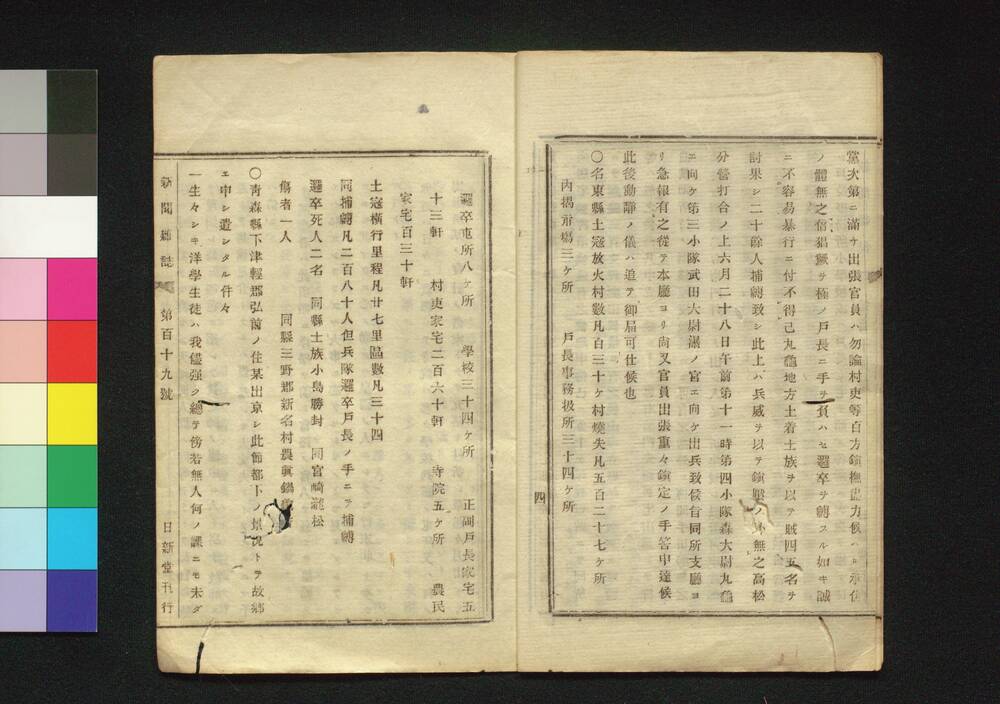 黨次第ニ滿ケ出張官員ハ勿論村吏等百方鎭撫盡力候
ノ體無之倍猖獗ヲ極メ戸長ニ手ヲ負ハセ邏卒ヲ縛スル如キ誠
ニ不容易暴行ニ付不得已丸龜地方土着士族ヲ以テ賊四五名ヲ
討果シ二十餘人捕縛致シ此上ハ兵威ヲ以テ鎭壓ノ外無之高松
分營打合ノ上六月二十八日午前第十一時第四小隊森大尉丸龜
ニ向ケ第三小隊武田大尉瀧ノ宮ヱ向ケ出兵致候旨同所支廳ヨ
リ急報有之從テ本廳ヨリ尚又官員出張重々鎭定ノ手筈申達候
此後動靜ノ儀ハ追テ御屆可仕候也
〇名東縣土寇放火村數凡百三十ケ村燒失凡五百二十七ケ所
内揭示塲三ケ所 戸長事務扱所三十四ケ所
四
邏卒屯所八ケ所 學校三十四ケ所 正副戸長家宅五
十三軒 村吏家宅二百六十軒 寺院五ケ所 農民
家宅百三十軒
土寇橫行里程凡廿七里區數凡三十四
同捕縛凡二百八十人但兵隊邏卒戸長ノ手ニテ捕縛
邏卒死人二名 同縣士族小島勝封 同宮崎瀧松
傷者一人 同縣三野郡新名村農眞鍋
〇青森縣下津輕郡弘前ノ住某出京シ此節都下ノ景況トテ故鄕
ヱ申シ遣シタル件々
一生々シキ洋學生徒ハ我儘强ク總テ傍若無人何ノ課ニモ未ダ
新聞雜誌 第百十九號 日新堂刊行